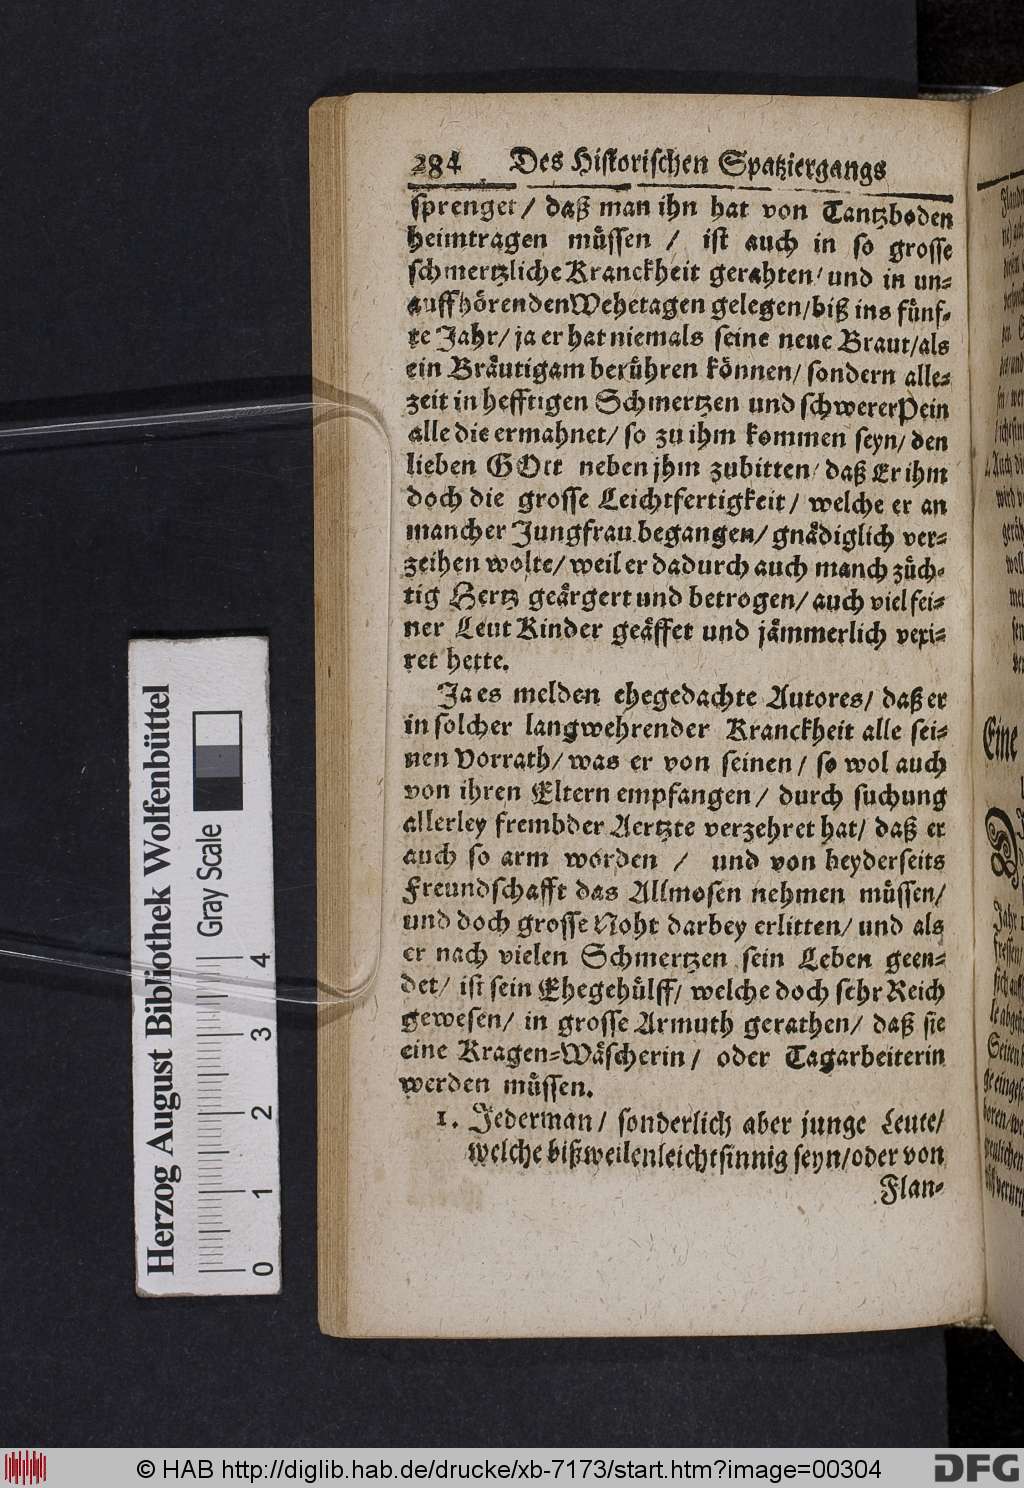 284 Des Historischen Spatziergangs
sprenget / daß man ihn hat von Tantzboden
heimtragen müssen / ist auch in so grosse
schmertzliche Kranckheit gerahten / und in un-
auffhörenden Wehetagen gelegen / biß ins fünf-
te Jahr / ja er hat niemals seine neue Braut / als
ein Bräutigam berühren können / sondern alle-
zeit in hefftigen Schmertzen und schwerer Pein
alle die ermahnet / so zu ihm kommen seyn / den
lieben GOtt neben jhm zubitten / daß Er ihm
doch die grosse Leichtfertigkeit / welche er an
mancher Jungfrau begangen / gnädiglich ver-
zeihen wolte / weil er dadurch auch manch züch-
tig Hertz geärgert und betrogen / auch viel fei-
ner Leut Kinder geäffet und jämmerlich vexi-
ret hette.
Ja es melden ehegedachte Autores / daß er
in solcher langwehrender Kranckheit alle sei-
nen Vorrath / was er von seinen / so wol auch
von ihren Eltern empfangen / durch suchung
allerley frembder Aertzte verzehret hat / daß er
auch so arm worden / und von beyderseits
Freundschafft das Allmosen nehmen müssen /
und doch grosse Noht darbey erlitten / und als
er nach vielen Schmertzen sein Leben geen-
det / ist sein Ehegehülff / welche doch sehr Reich
gewesen / in grosse Armuth gerathen / daß sie
eine Kragen-Wäscherin / oder Tagarbeiterin
werden müssen.
1. Jederman / sonderlich aber junge Leute /
welche bißweilen leichtsinnig seyn / oder von
Flan-
Herzog August Bibliothek Wolfenbüttel
Gray Scale
0 1 2 3 4
Eine
© HAB http://diglib.hab.de/drucke/xb-7173/start.htm?image=00304
DFG